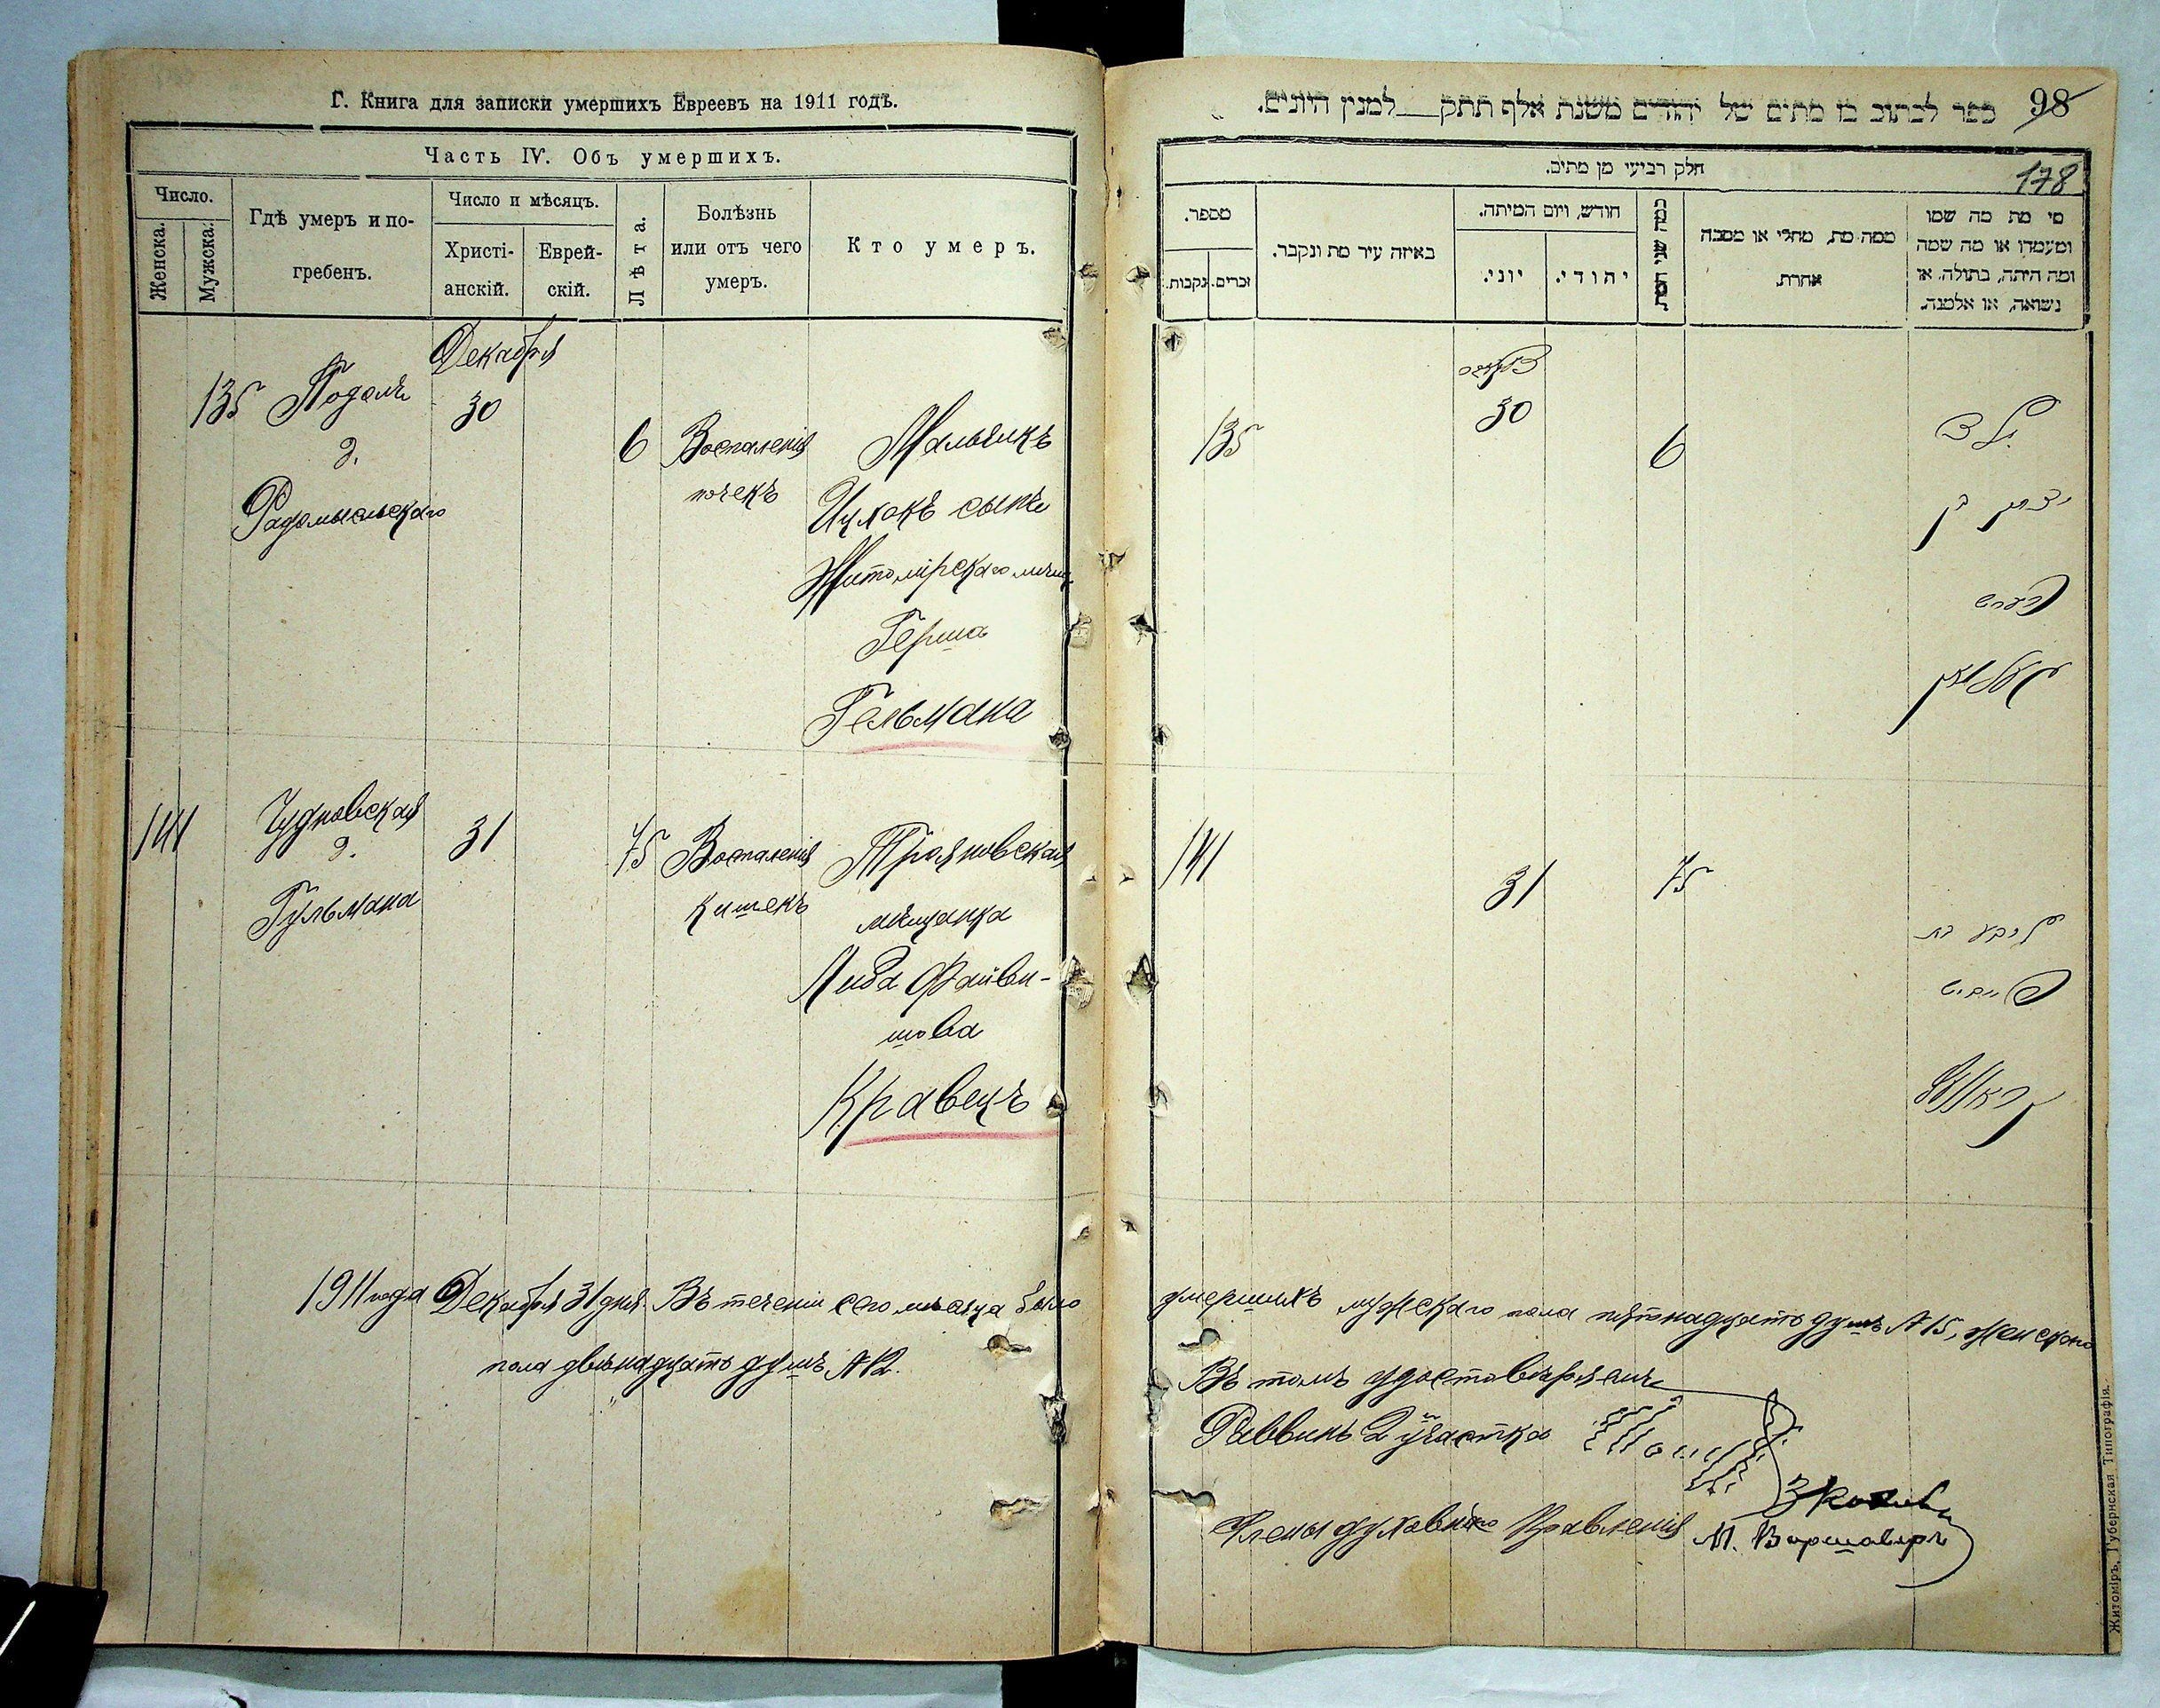 Г. Книга для записки умершихъ Евреевъ на 1911 годъ.
Часть IV. Объ умершихъ.
Число.
Женска.
Мужска.
Гдѣ умеръ и по-
гребенъ.
Число и мѣсяцъ.
Христі-
анскій.
Еврей-
скій.
Лѣта.
Болѣзнь
или отъ чего
умеръ.
Кто умеръ.
Декабря
135 Подолъ 30
д.
Радомысльскаго
6 Воспаленія
почекъ
Мальчикъ
Ицхокъ сынъ
Житомірскаго мѣщ.
Герша
Гельмана
141 Чудновская 31
д.
Гульмана
75 Воспаленія
кишекъ
Трояновская
мѣщанка
Люба Файви-
шова
Кравецъ
1911 года Декабря 31 дня. Въ теченіи сего мѣсяца было
пола двѣнадцать душъ №12.
ספר לכתוב בו מתים של יהודים משנת אלף תתק למנין היונים.
98
חלק רביעי מן מתים.
178
מספר.
נקבות.
זכרים.
באיזה עיר מת ונקבר.
חודש, ויום המיתה.
יוני.
יהודי.
כמה שני המת.
ממה מת, מחלי או מסבה
אחרת.
מי מת מה שמו
ומעמדו או מה שמה
ומה היתה, בתולה, או
נשואה, או אלמנה.
135
30
6
ילד
יצחק בן
הערש
העלמאן
141
31
75
ליבע בת
פייוויש
קראוועץ
умершихъ мужскаго пола пятнадцать душъ №15, женскаго
Въ томъ удостовѣряемъ
Раввинъ 2 участка
Члены духовнаго Правленія
М. Варшаверъ
Житоміръ, Губернская Типографія.